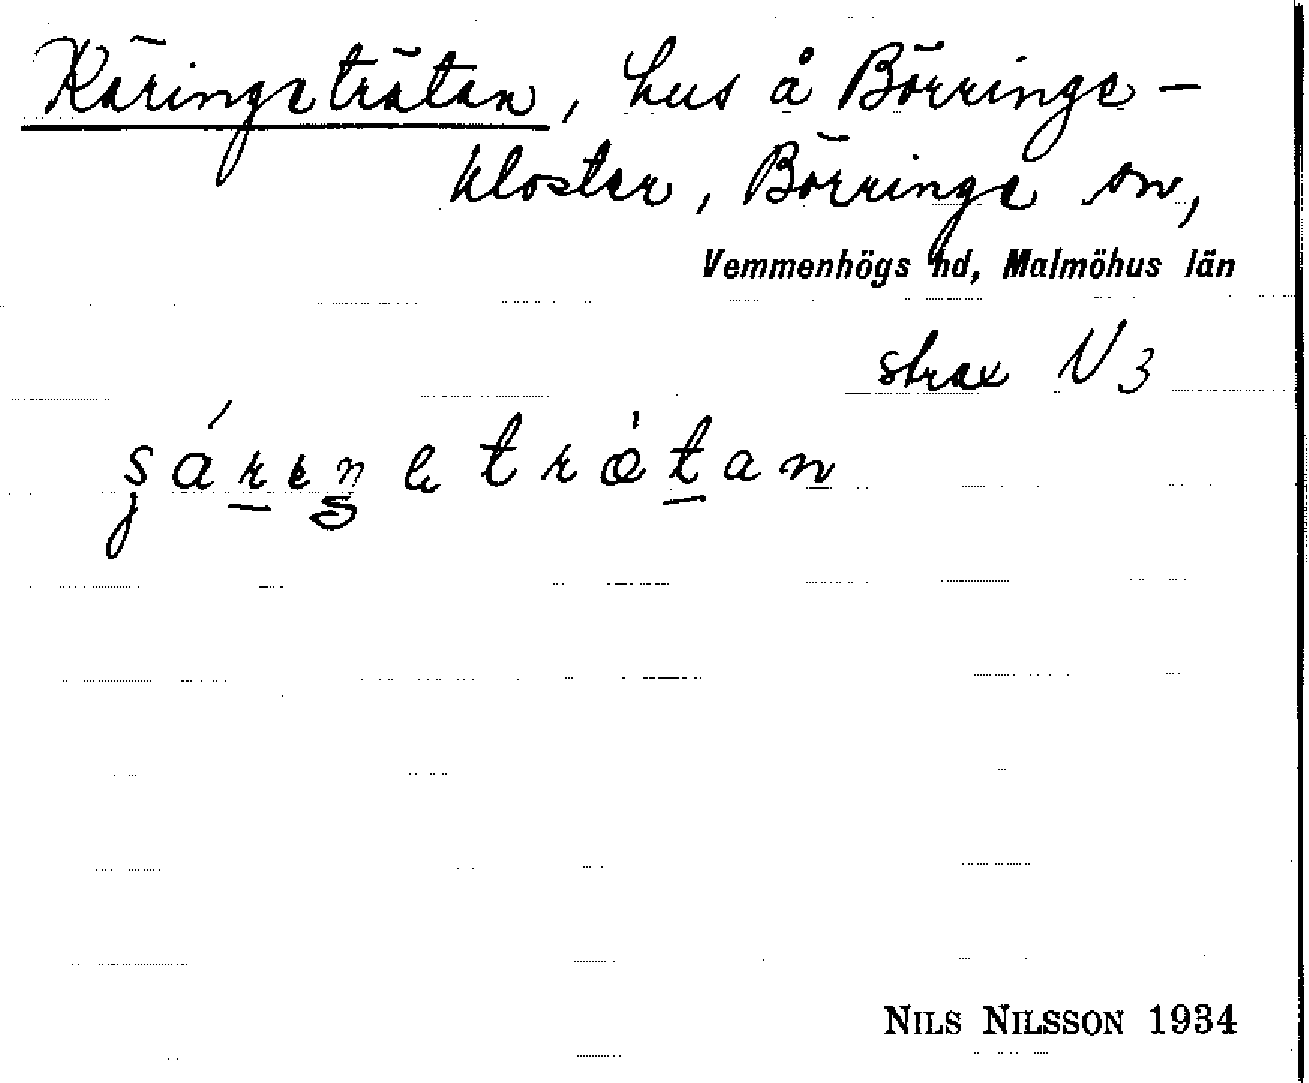 Käringeträtan, hus å Börringe-
kloster, Börringe sn,
Vemmenhögs hd, Malmöhus län
strax N 3
NILS NILSSON 1934